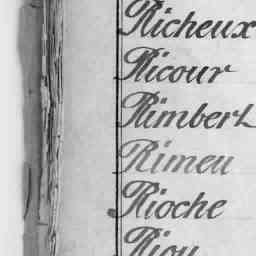 Richeux
Ricour
Rimbert
Rimeu
Rioche
Riou